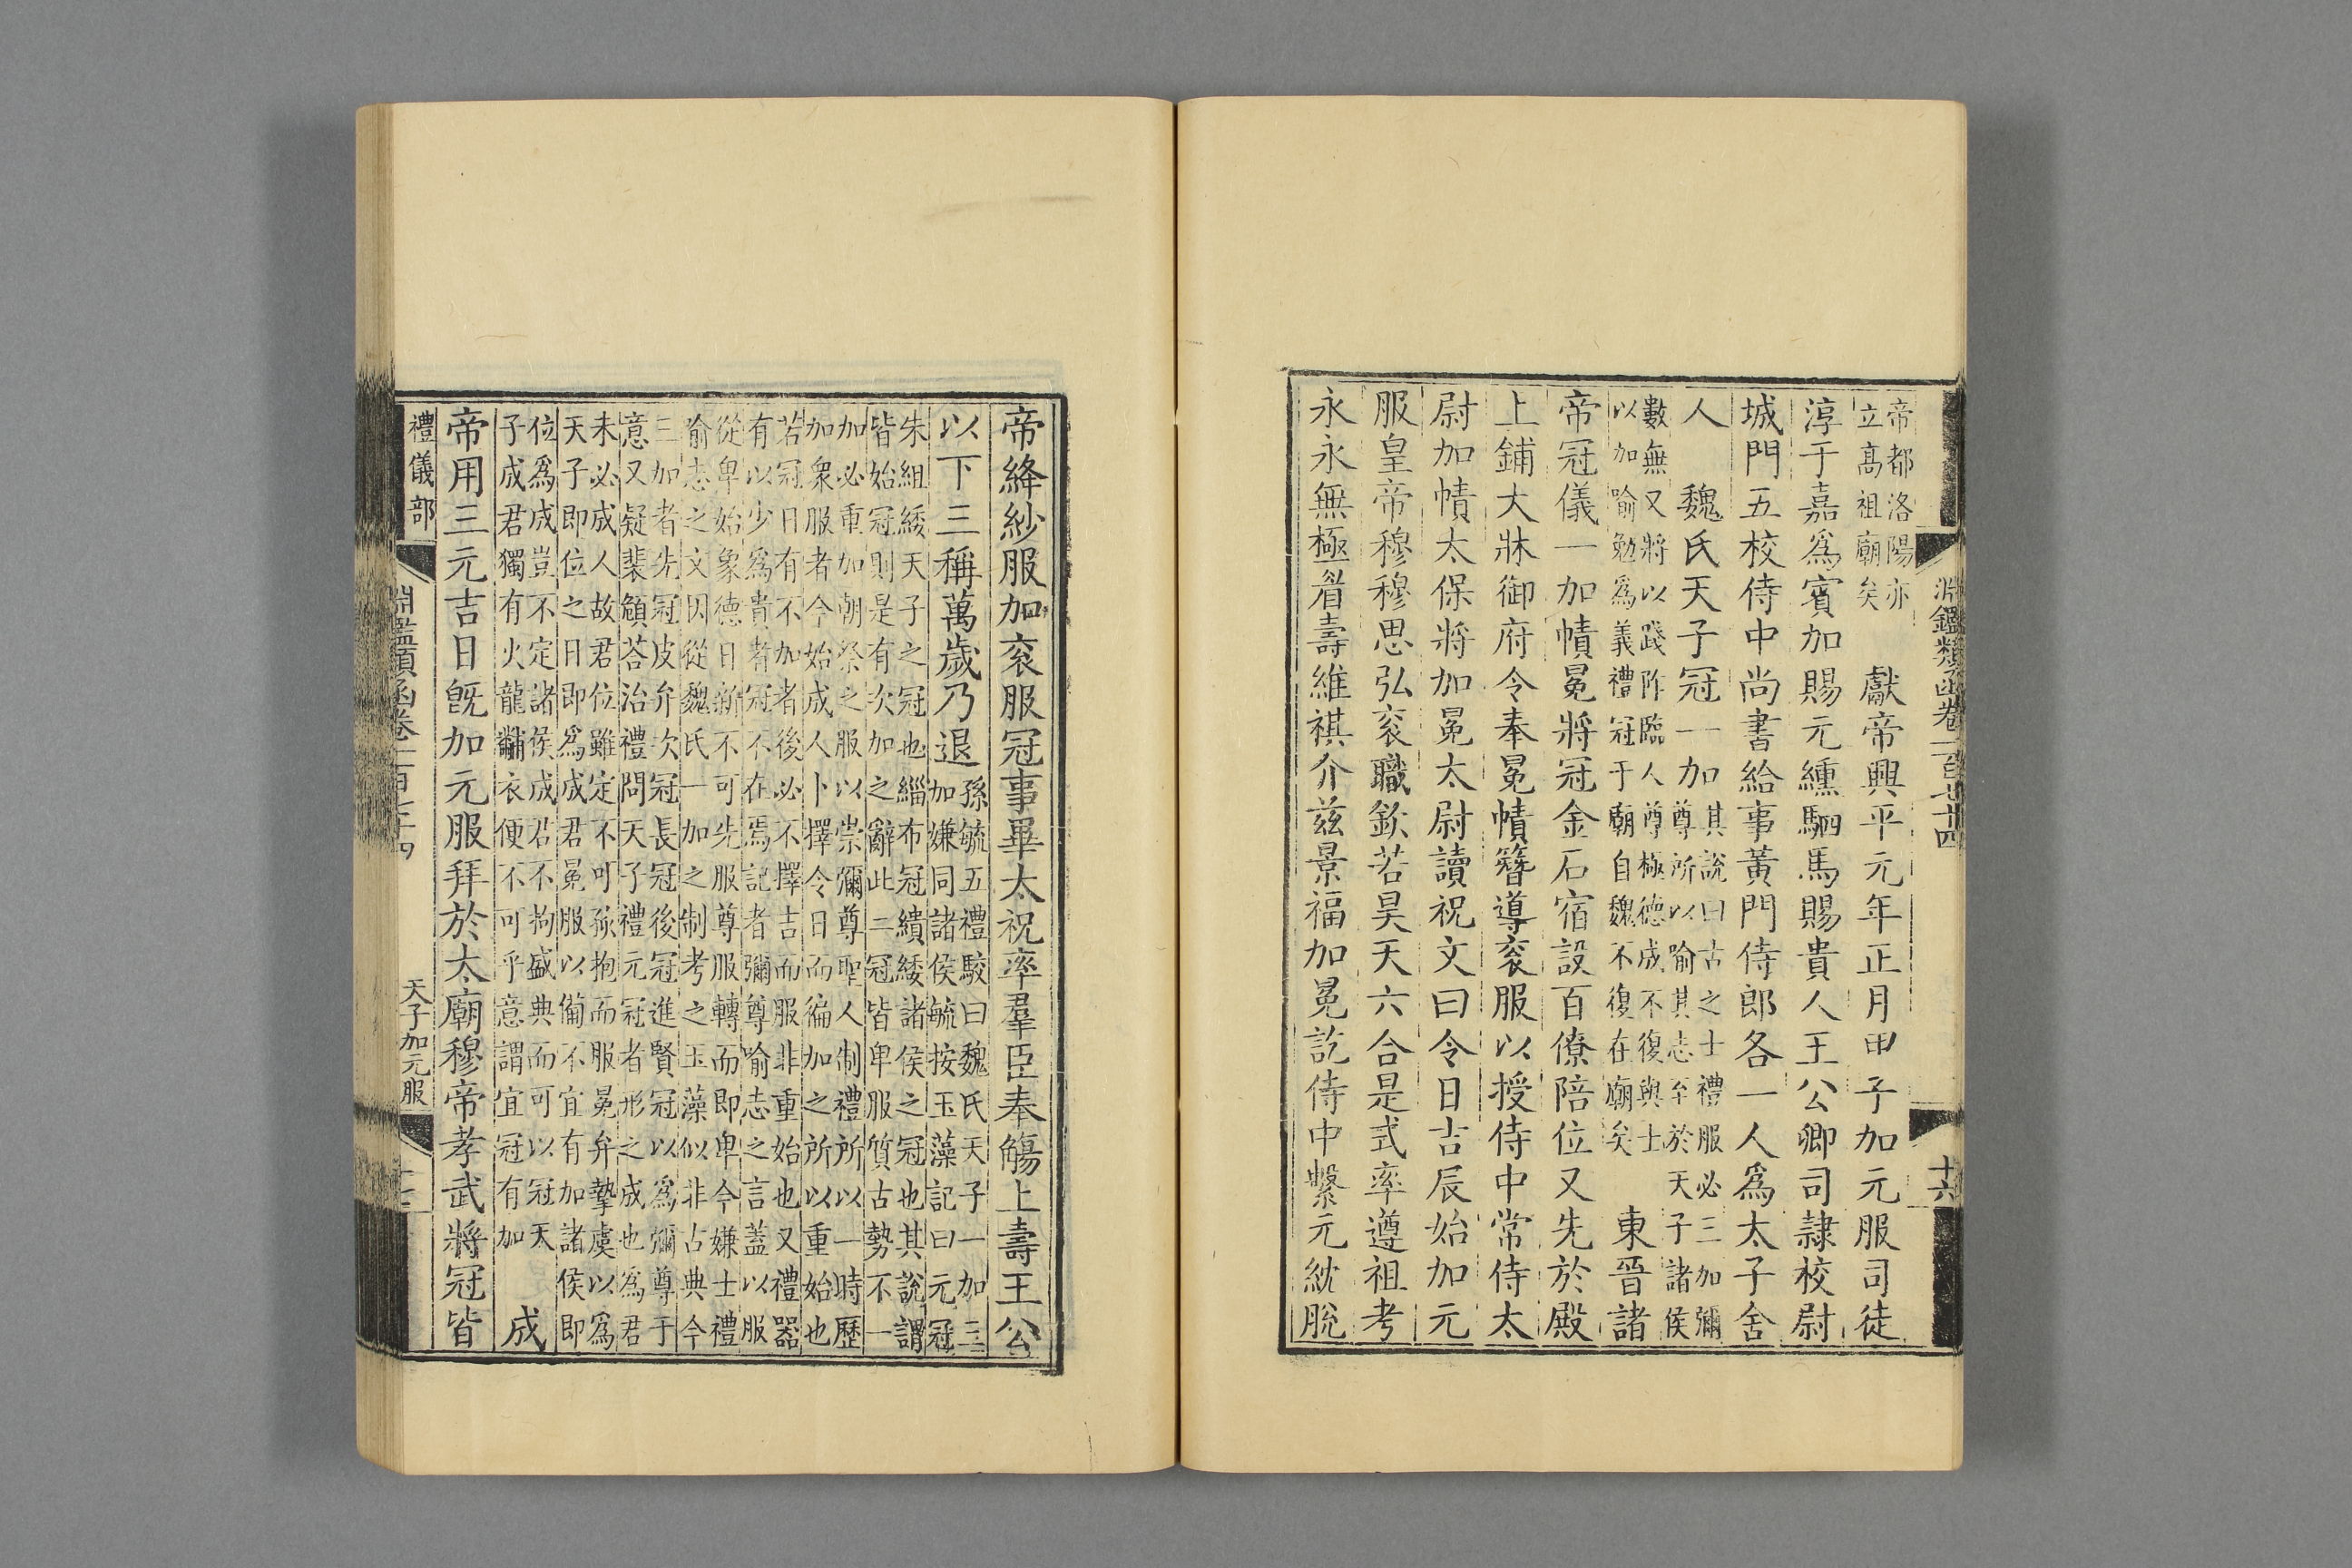 淵鑑類函卷一百七十四
十六
帝都洛陽亦
立髙祖廟矣
獻帝興平元年正月甲子加元服司徒
淳于嘉爲賓加賜元纁駟馬賜貴人王公卿司隷校尉
城門五校侍中尚書給事黃門侍郎各一人爲太子舍
人　魏氏天子冠一加
其說曰古之士禮服必三加彌
尊所以喻其志至於天子諸侯
數無又將以踐阼臨人尊極德成不復與士
以加喻勉爲義禮冠于廟自魏不復在廟矣
東晉諸
帝冠儀一加幘冕將冠金石宿設百僚陪位又先於殿
上鋪大牀御府令奉冕幘簪導衮服以授侍中常侍太
尉加幘太保將加冕太尉讀祝文曰令日吉辰始加元
服皇帝穆穆思弘衮職欽若昊天六合是式率遵祖考
永永無極眉壽維祺介兹景福加冕訖侍中繫元紞脫
帝絳紗服加衮服冠事畢太祝率羣臣奉觴上壽王公
以下三稱萬歲乃退
孫毓五禮駮曰魏氏天子一加三
加嫌同諸侯毓按玉藻記曰元冠
朱組綏天子之冠也緇布冠繢綏諸侯之冠也其說謂
皆始冠則是有次加之辭此二冠皆卑服質古勢不一
加必重加朝祭之服以崇彌尊聖人制禮所以一時歷
加衆服者今始成人卜擇令日而徧加之所以重始也
若冠日有不加者後必不擇吉而服非重始也又禮器
有以少爲貴者冠不在焉記者彌尊喻志之言蓋以服
從卑始象德日新不可先服尊服轉而即卑今嫌士禮
喻志之文因從魏氏一加之制考之玉藻似非古典今
三加者先冠皮弁次冠長冠後冠進賢冠以爲彌尊于
意又疑裴頠荅治禮問天子禮元冠者形之成也爲君
未必成人故君位雖定不可孩抱而服冕弁摯虞以爲
天子即位之日即爲成君冕服以備不宜有加諸侯即
位爲成豈不定諸侯成君不拘盛典而可以冠天
子成君獨有火龍黼衣便不可乎意謂宜冠有加
成
帝用三元吉日旣加元服拜於太廟穆帝孝武將冠皆
禮儀部
淵鑑類函卷一百七十四
天子加元服